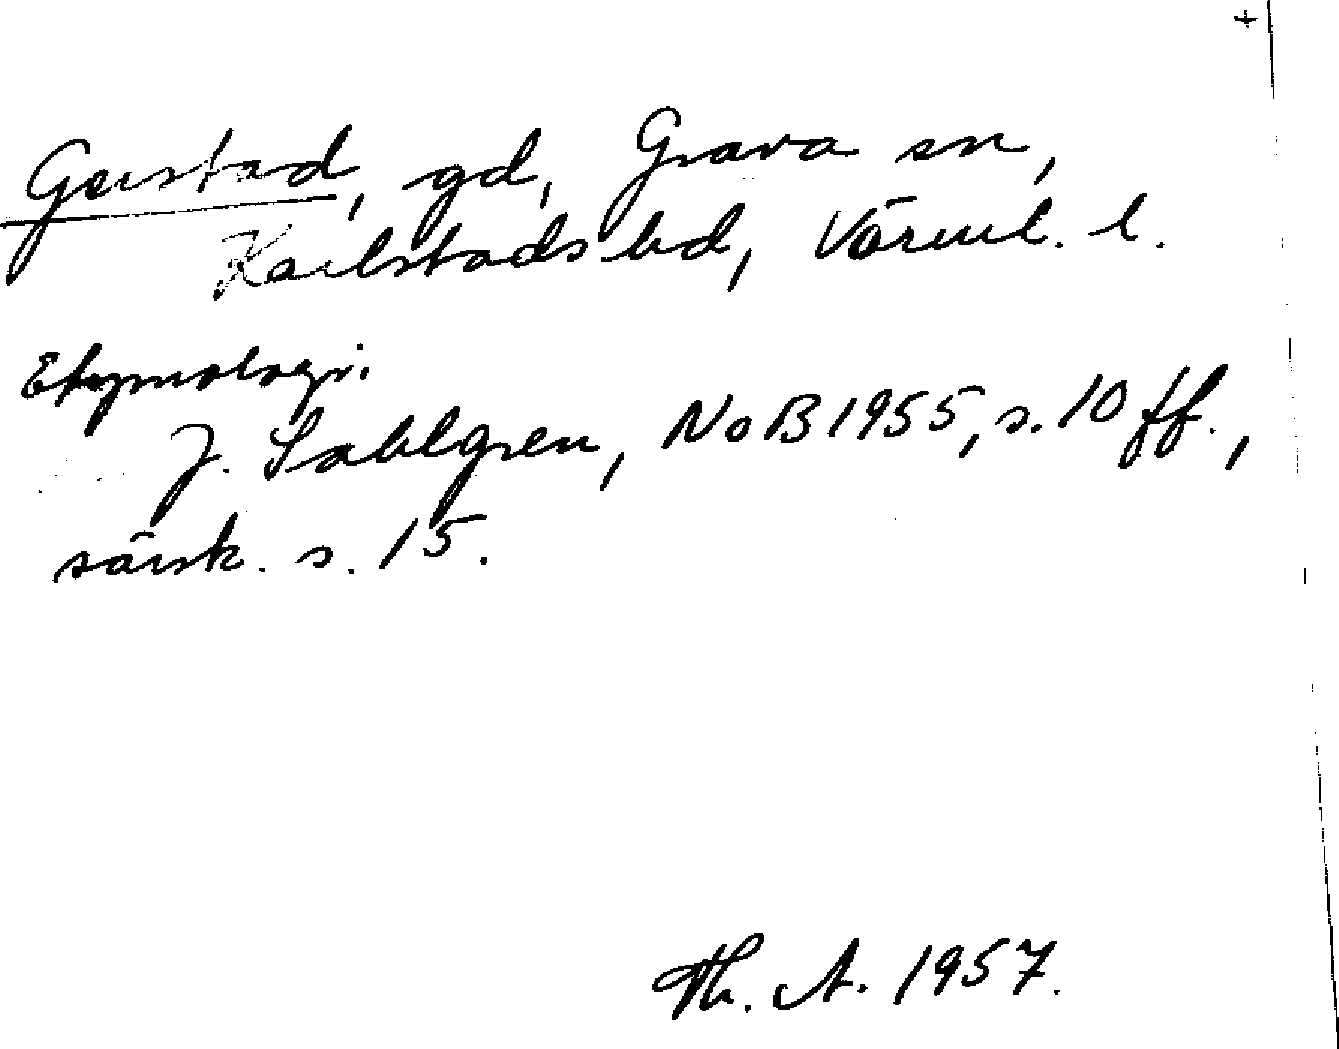 +
Gerstad, gd, Grava sn,
Karlstads hd, Värml. l.
Etymologi.
J. Sahlgren, NoB 1955, s. 10 ff.,
särsk. s. 15.
Th. A. 1957.